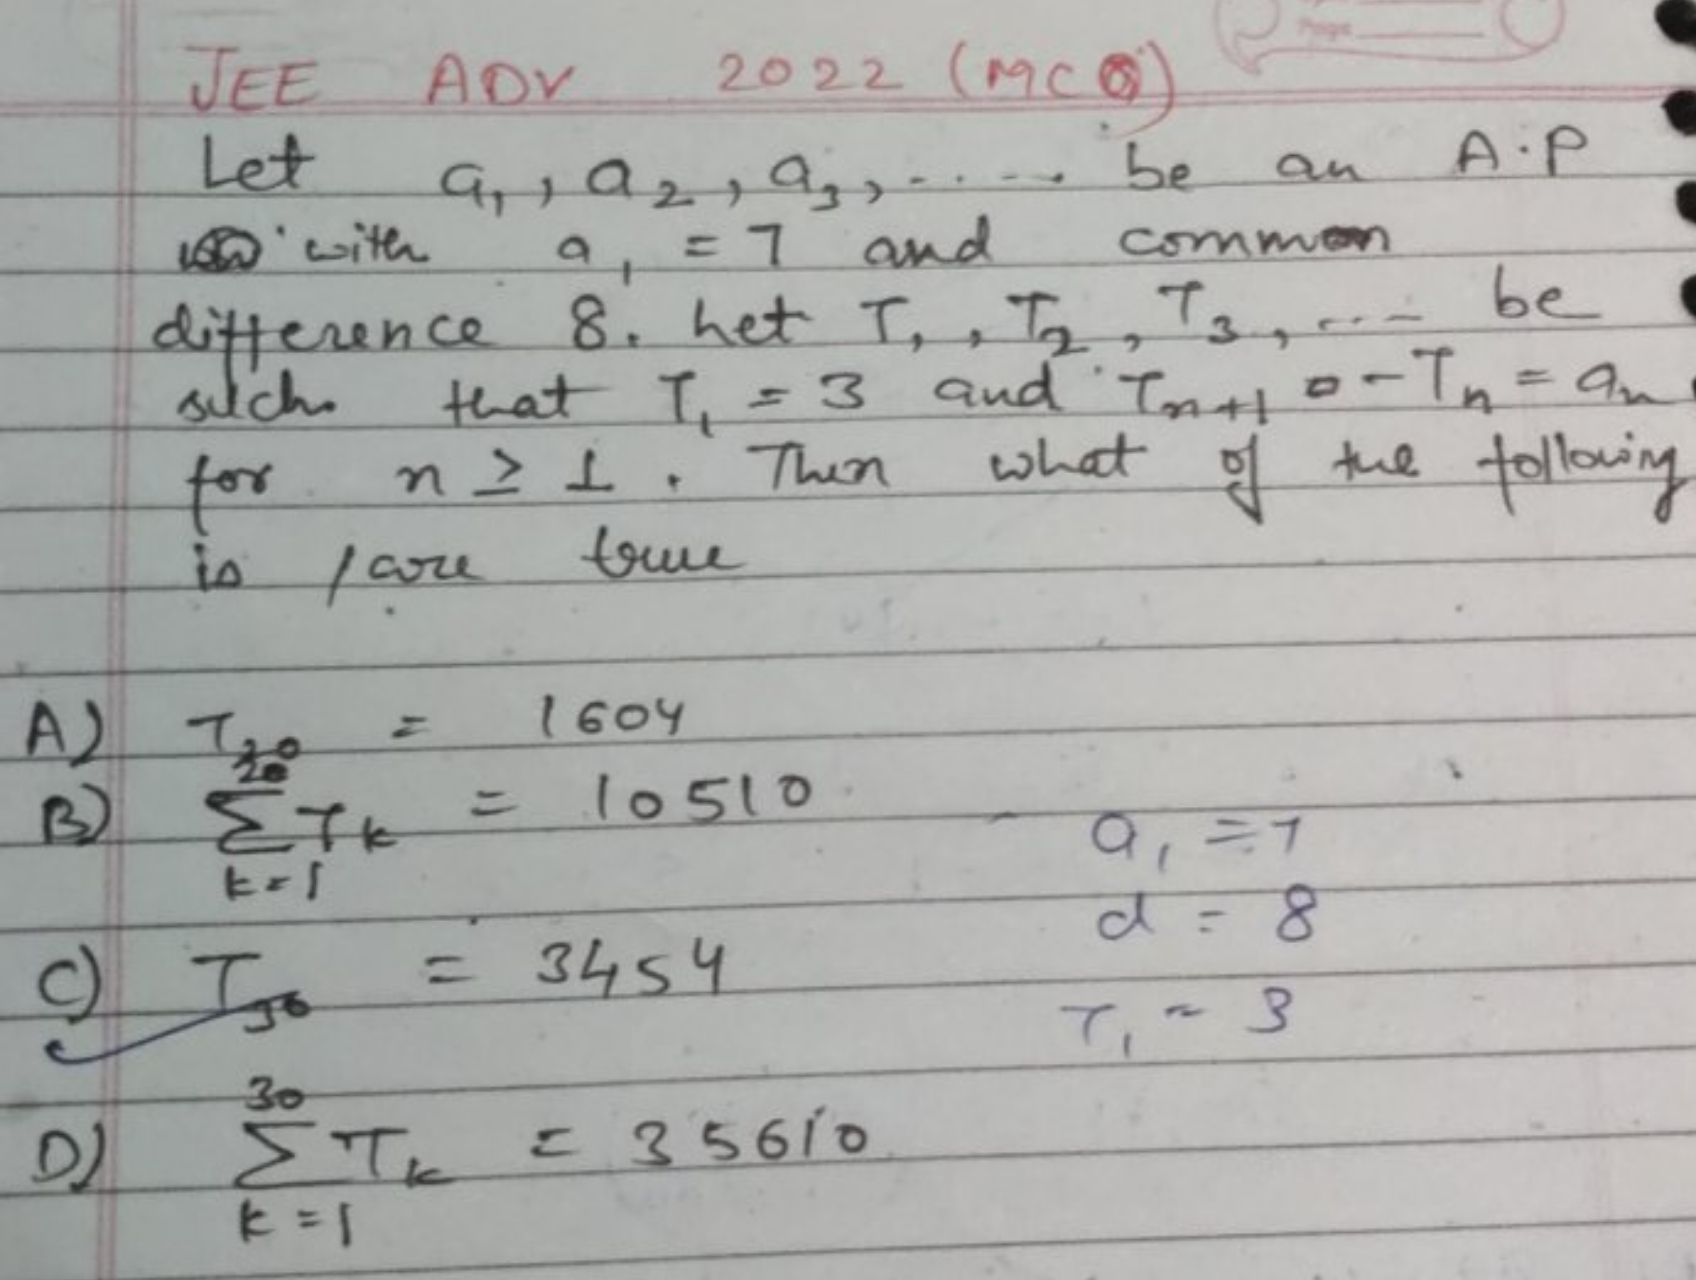 JEE ADV 2022 (MCQ)
Let a₁, a₂, a₃, ..... be an A.P
with a₁ = 7 and common
difference 8. Let T₁, T₂, T₃, .... be
such that T₁ = 3 and Tₙ₊₁ - Tₙ = aₙ
for n ≥ 1. Then what of the following
is / are true
A) T₂₀ = 1604
B) ∑ₖ₌₁²⁰ Tₖ = 10510
a₁ = 7
d = 8
C) T₃₀ = 3454
T₁ = 3
D) ∑ₖ₌₁³⁰ Tₖ = 35610